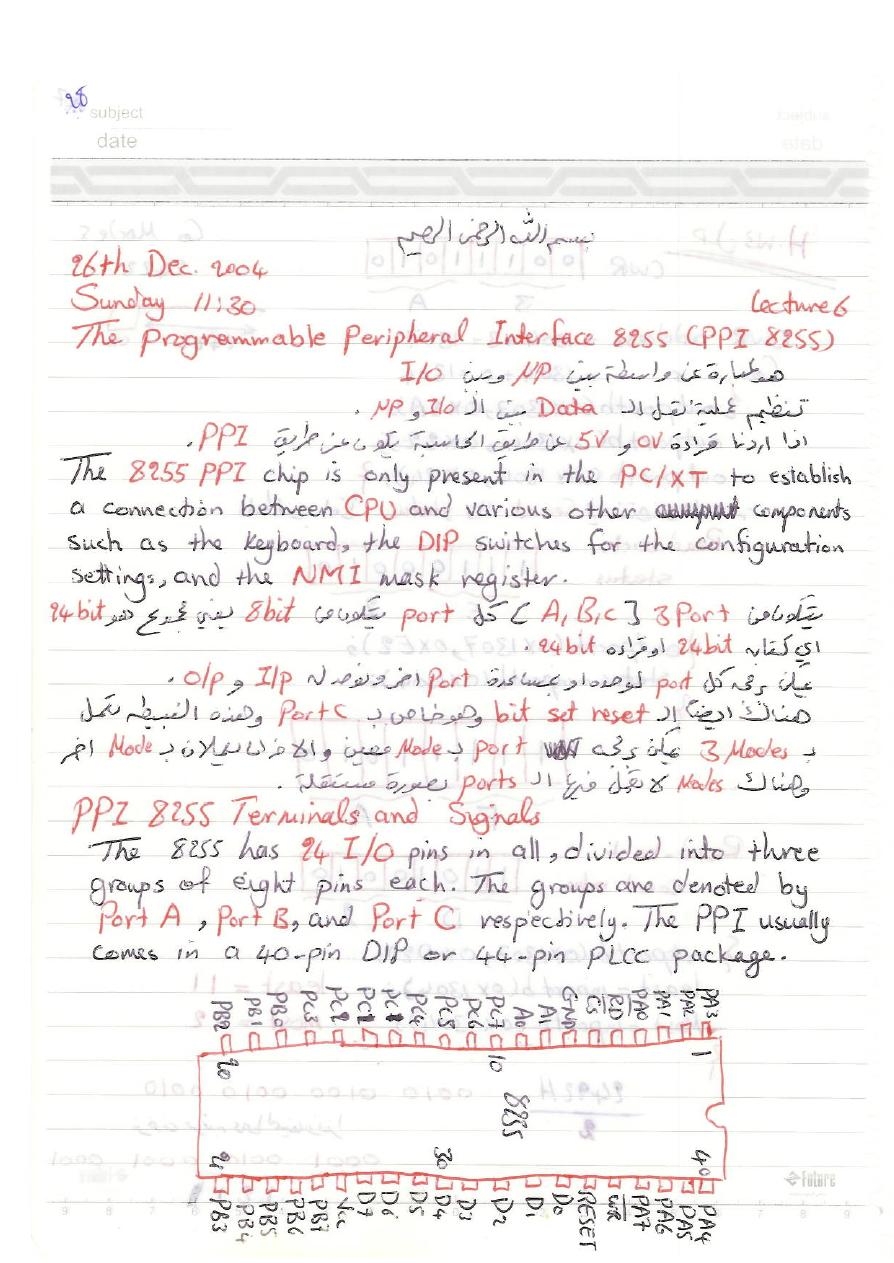 28
subject
date
بسم الله الرحمن الرحيم
26th Dec. 2004
Sunday 11:30
Lecture 6
The Programmable Peripheral Interface 8255 (PPI 8255)
هو عبارة عن واسطة بين μP وبين I/O
تنظيم عملية نقل الـ Data بين الـ I/O و μP .
اذا اردنا قراءة 0V و 5V عن طريق الحاسبة يكون عن طريق PPI .
The 8255 PPI chip is only present in the PC/XT to establish
a connection between CPU and various other components
such as the keyboard, the DIP switches for the configuration
settings, and the NMI mask register.
يتكون من 3 Port [A, B, C] كل port يتكون من 8bit يعني مجموع هو 24bit
اي كتابه 24bit او قراءه 24bit .
يمكن برمجه كل port لوحده او بمساعدة Port اخر ونوصله I/P و O/P .
هناك ايضاً الـ bit set reset وهو خاص بـ Port C وهذه البسيطه تعمل
بـ 3 Modes يمكن برمجه port بـ Mode معين والاخران يعملان بـ Mode اخر
وهناك Modes لا تعمل فيها الـ ports بصورة مستقلة .
PPI 8255 Terminals and Signals
The 8255 has 24 I/O pins in all, divided into three
groups of eight pins each. The groups are denoted by
Port A, Port B, and Port C respectively. The PPI usually
comes in a 40-pin DIP or 44-pin PLCC package.
PB2 PB1 PB0 PC3 PC2 PC1 PC4 PC5 PC6 PC7 A0 A1 GND CS RD PA0 PA1 PA2 PA3
20 10 1
8255
21 30 40
PB3 PB4 PB5 PB6 PB7 Vcc D7 D6 D5 D4 D3 D2 D1 D0 RESET WR PA7 PA6 PA5 PA4
Future